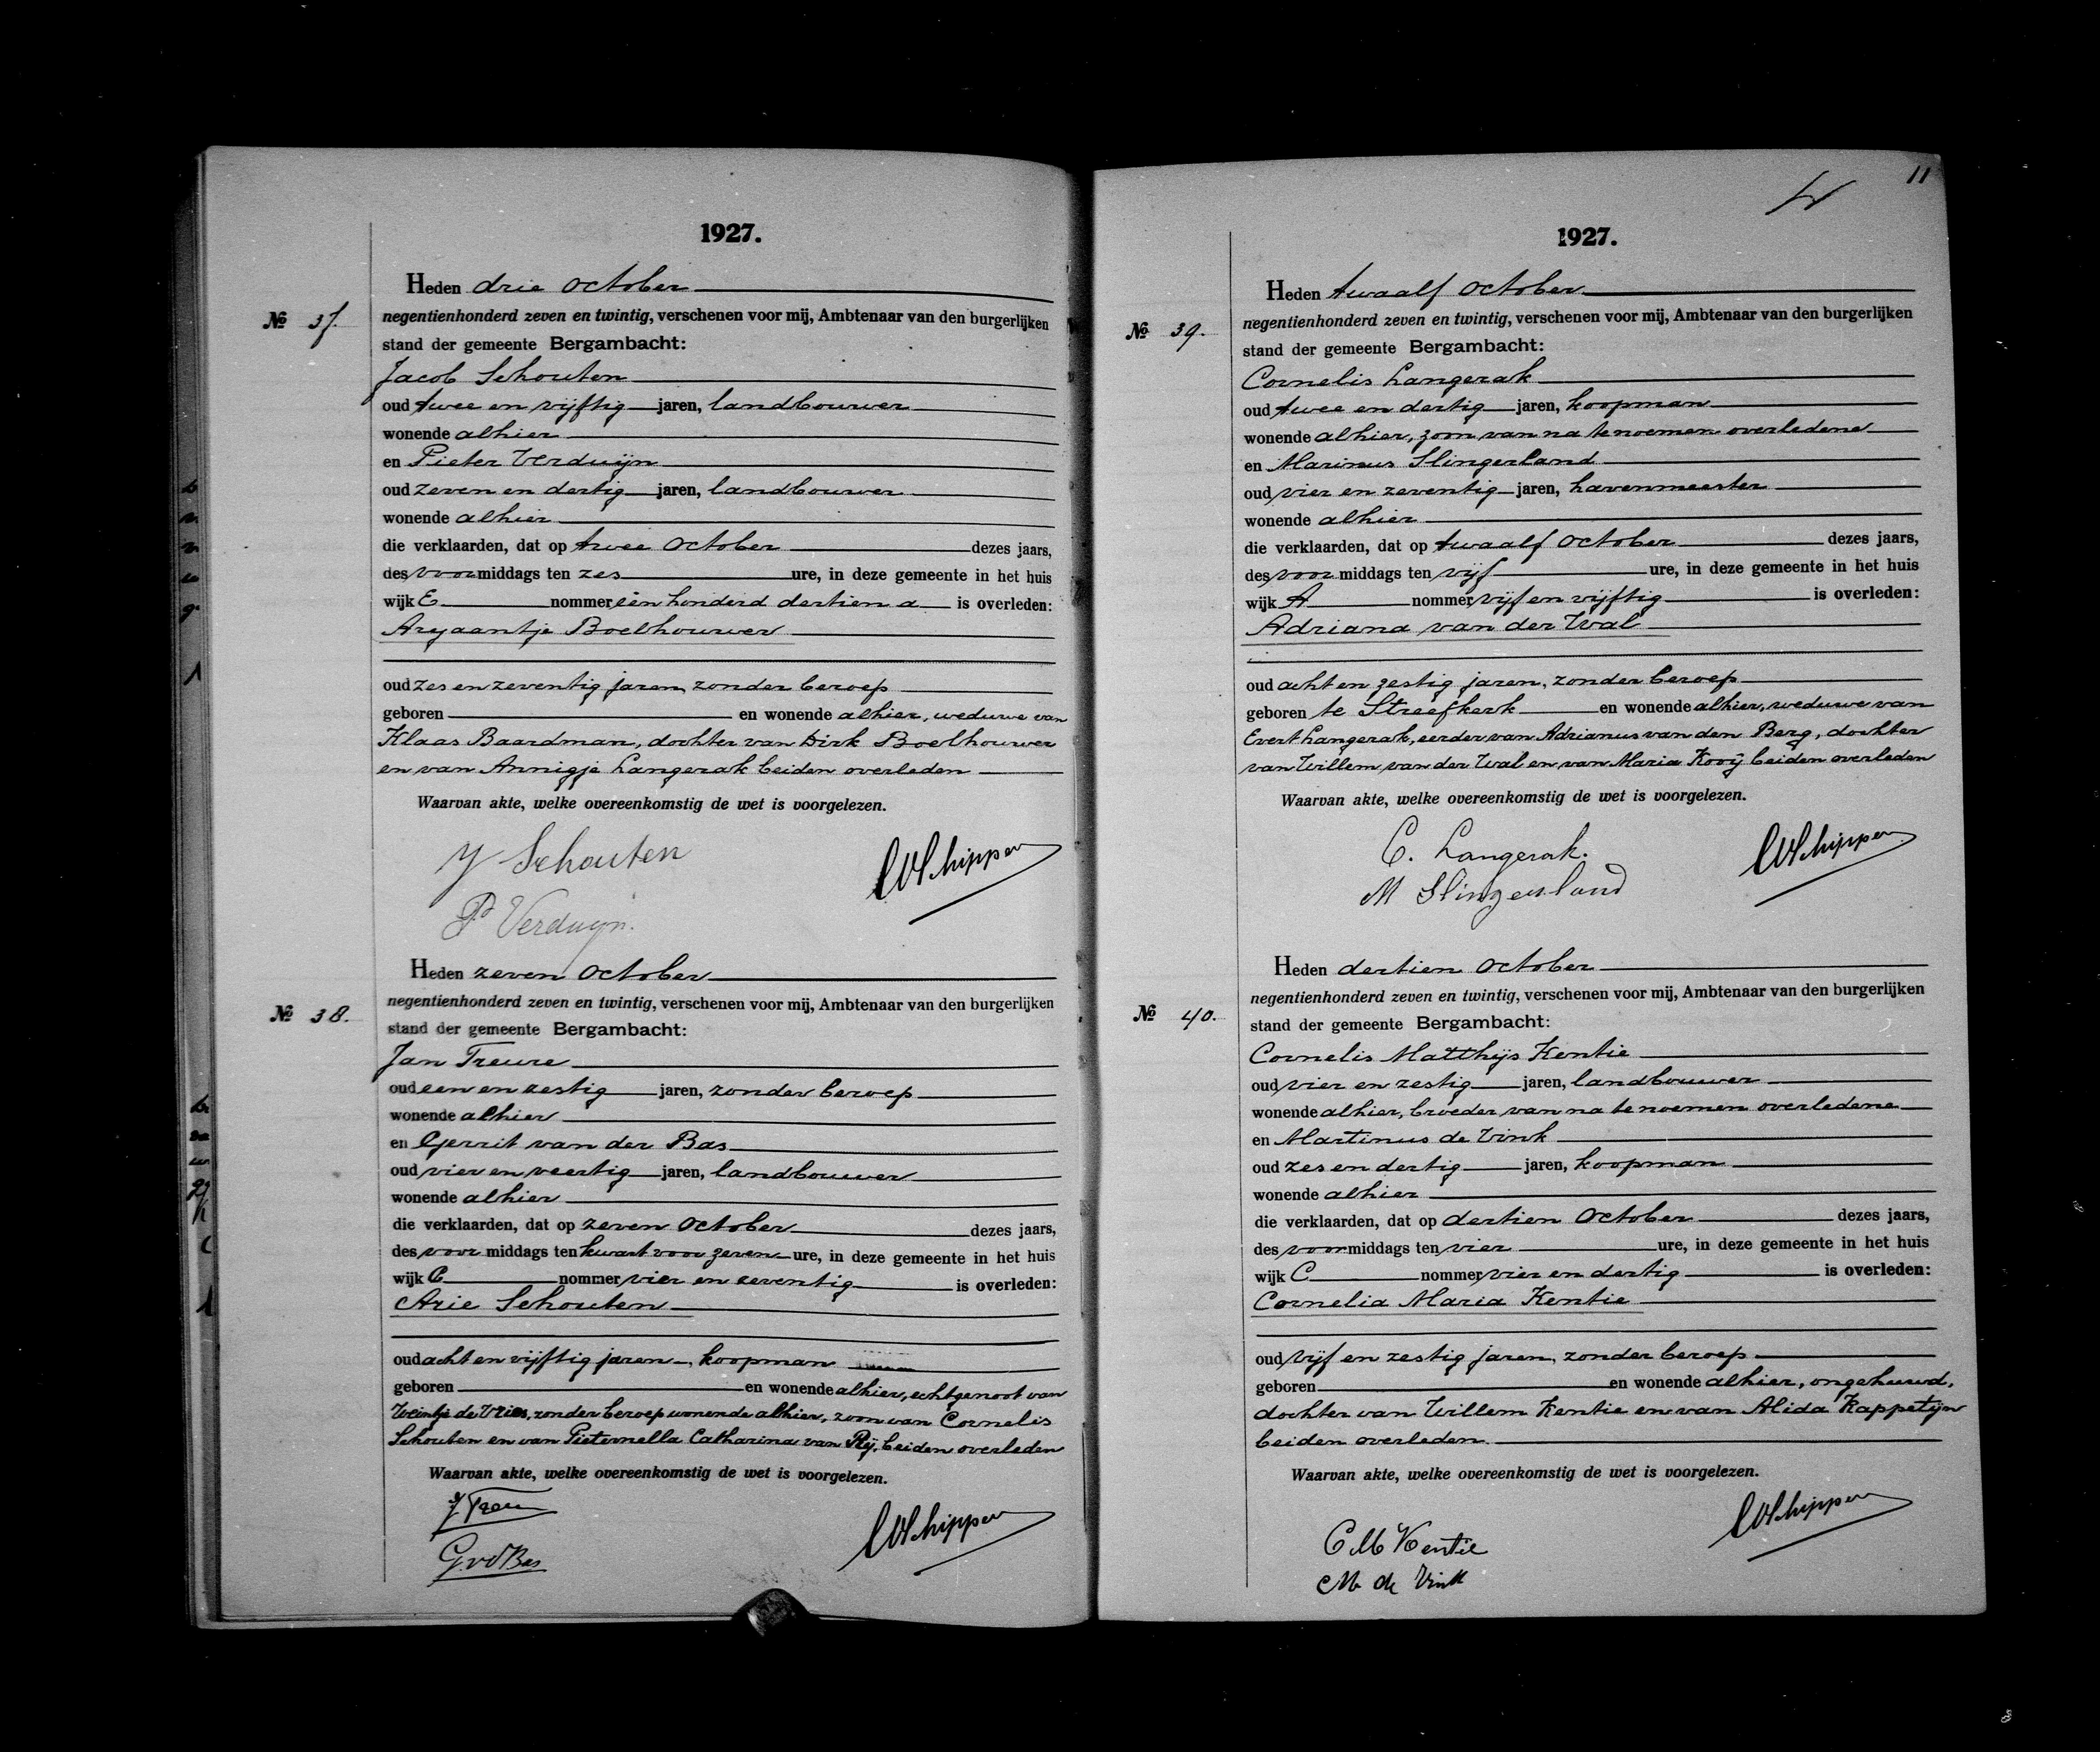 1927.
Heden drie October
No 37.
negentienhonderd zeven en twintig, verschenen voor mij, Ambtenaar van den burgerlijken
stand der gemeente Bergambacht:
Jacob Schouten
oud twee en vijftig jaren, landbouwer
wonende alhier
en Pieter Verduijn
oud zeven en dertig jaren, landbouwer
wonende alhier
die verklaarden, dat op twee October dezes jaars,
des voormiddags ten zes ure, in deze gemeente in het huis
wijk E nommer een honderd dertien a is overleden:
Aryaantje Boelhouwer
oud zes en zeventig jaren, zonder beroep
geboren en wonende alhier, weduwe van
Klaas Baardman, dochter van Dirk Boelhouwer
en van Annigje Langerak beiden overleden
Waarvan akte, welke overeenkomstig de wet is voorgelezen.
J Schouten
P Verduijn.
Heden zeven October
No 38.
negentienhonderd zeven en twintig, verschenen voor mij, Ambtenaar van den burgerlijken
stand der gemeente Bergambacht:
Jan Treure
oud een en zestig jaren, zonder beroep
wonende alhier
en Gerrit van der Bas
oud vier en veertig jaren, landbouwer
wonende alhier
die verklaarden, dat op zeven October dezes jaars,
des voormiddags ten kwart voor zeven ure, in deze gemeente in het huis
wijk C nommer vier en zeventig is overleden:
Arie Schouten
oud acht en vijftig jaren, koopman
geboren en wonende alhier, echtgenoot van
Weintje de Vries, zonder beroep wonende alhier, zoon van Cornelis
Schouten en van Pieternella Catharina van Rij, beiden overleden
Waarvan akte, welke overeenkomstig de wet is voorgelezen.
G vd Bas
11
1927.
Heden twaalf October
No 39.
negentienhonderd zeven en twintig, verschenen voor mij, Ambtenaar van den burgerlijken
stand der gemeente Bergambacht:
Cornelis Langerak
oud twee en dertig jaren, koopman
wonende alhier, zoon van na te noemen overledene
en Marinus Slingerland
oud vier en zeventig jaren, havenmeester
wonende alhier
die verklaarden, dat op twaalf October dezes jaars,
des voormiddags ten vijf ure, in deze gemeente in het huis
wijk A nommer vijf en vijftig is overleden:
Adriana van der Wal
oud acht en zestig jaren, zonder beroep
geboren te Streefkerk en wonende alhier, weduwe van
Evert Langerak, eerder van Adrianus van den Berg, dochter
van Willem van der Wal en van Maria Kooij beiden overleden
Waarvan akte, welke overeenkomstig de wet is voorgelezen.
C. Langerak.
M Slingerland
Heden dertien October
No 40.
negentienhonderd zeven en twintig, verschenen voor mij, Ambtenaar van den burgerlijken
stand der gemeente Bergambacht:
Cornelis Matthijs Kentie
oud vier en zestig jaren, landbouwer
wonende alhier, broeder van na te noemen overledene
en Martinus de Vink
oud zes en dertig jaren, koopman
wonende alhier
die verklaarden, dat op dertien October dezes jaars,
des voormiddags ten vier ure, in deze gemeente in het huis
wijk C nommer vier en dertig is overleden:
Cornelia Maria Kentie
oud vijf en zestig jaren, zonder beroep
geboren en wonende alhier, ongehuwd,
dochter van Willem Kentie en van Alida Kappetijn
beiden overleden.
Waarvan akte, welke overeenkomstig de wet is voorgelezen.
C M Kentie
M de Vink